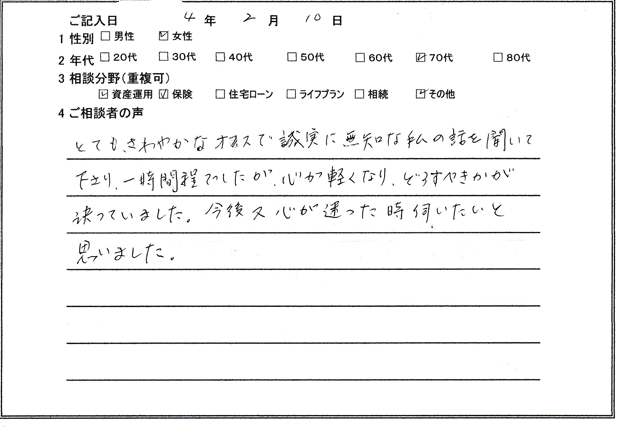 ご記入日 4 年 2 月 10 日
1 性別 □ 男性 ☑ 女性
2 年代 □ 20代 □ 30代 □ 40代 □ 50代 □ 60代 ☑ 70代 □ 80代
3 相談分野(重複可)
☑ 資産運用 ☑ 保険 □ 住宅ローン □ ライフプラン □ 相続 ☑ その他
4 ご相談者の声
とてもさわやかなボイスで誠実に無知な私の話を聞いて
下さり、一時間程でしたが、心が軽くなり、どうすべきかが
決っていました。今後又心が迷った時伺いたいと
思いました。